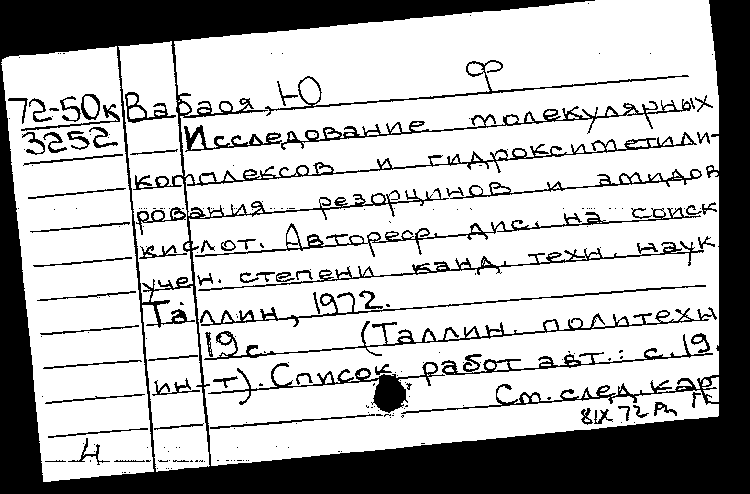 72-50к Вабаоя, Ю Ф
3252 Исследование молекулярных
комплексов и гидроксиметили-
рования резорцинов и амидов
кислот. Автореф. дис. на соиск
учен. степени канд. техн. наук
Таллин, 1972.
19 с. (Таллин. политехн
ин-т). Список работ авт.: с. 19.
См. след. кар
81X 72
4